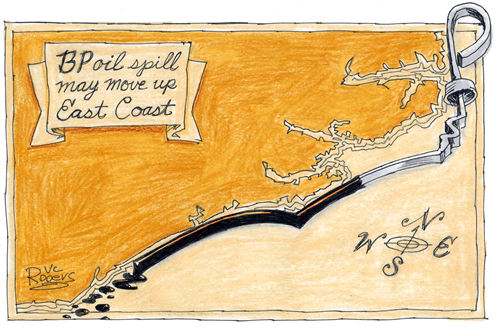 BP oil spill
may move up
East Coast
N
W E
S
VC
Rogers